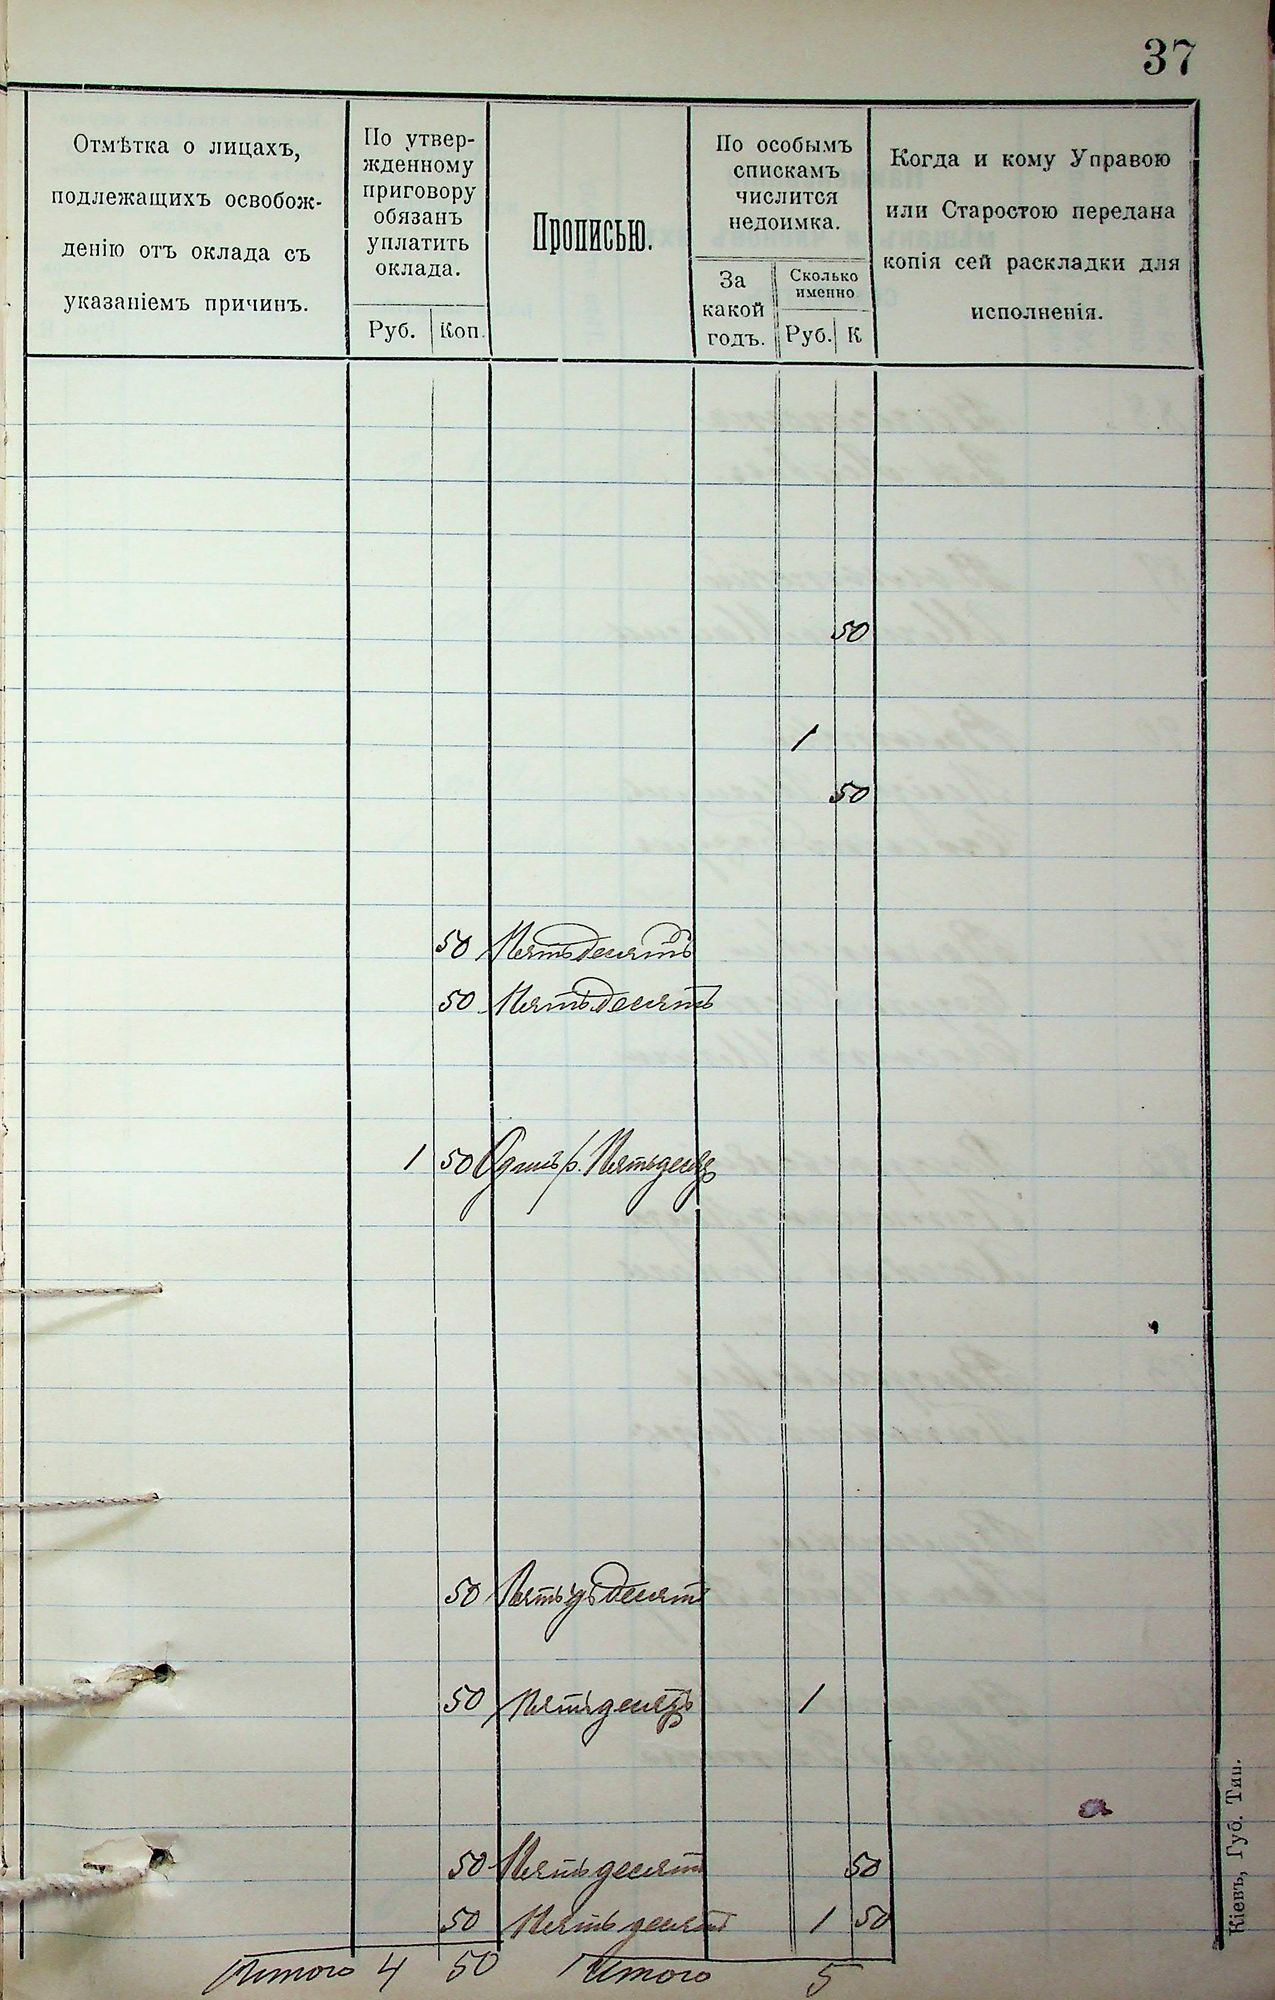 37
Отмѣтка о лицахъ,
подлежащихъ освобож-
денію отъ оклада съ
указаніемъ причинъ.
По утвер-
жденному
приговору
обязанъ
уплатить
оклада.
Руб. Коп.
Прописью.
По особымъ
спискамъ
числится
недоимка.
За
какой
годъ.
Сколько
именно
Руб. К
Когда и кому Управою
или Старостою передана
копія сей раскладки для
исполненія.
50
1
50
50 Пятьдесятъ
50 Пятьдесятъ
1 50 Одинъ р. Пятьдесят
50 Пятьдесят
50 Пятьдесятъ 1
50 Пятьдесят 50
50 Пятьдесят 1 50
Итого 4 50 Итого 5
Кіевъ, Губ. Тип.